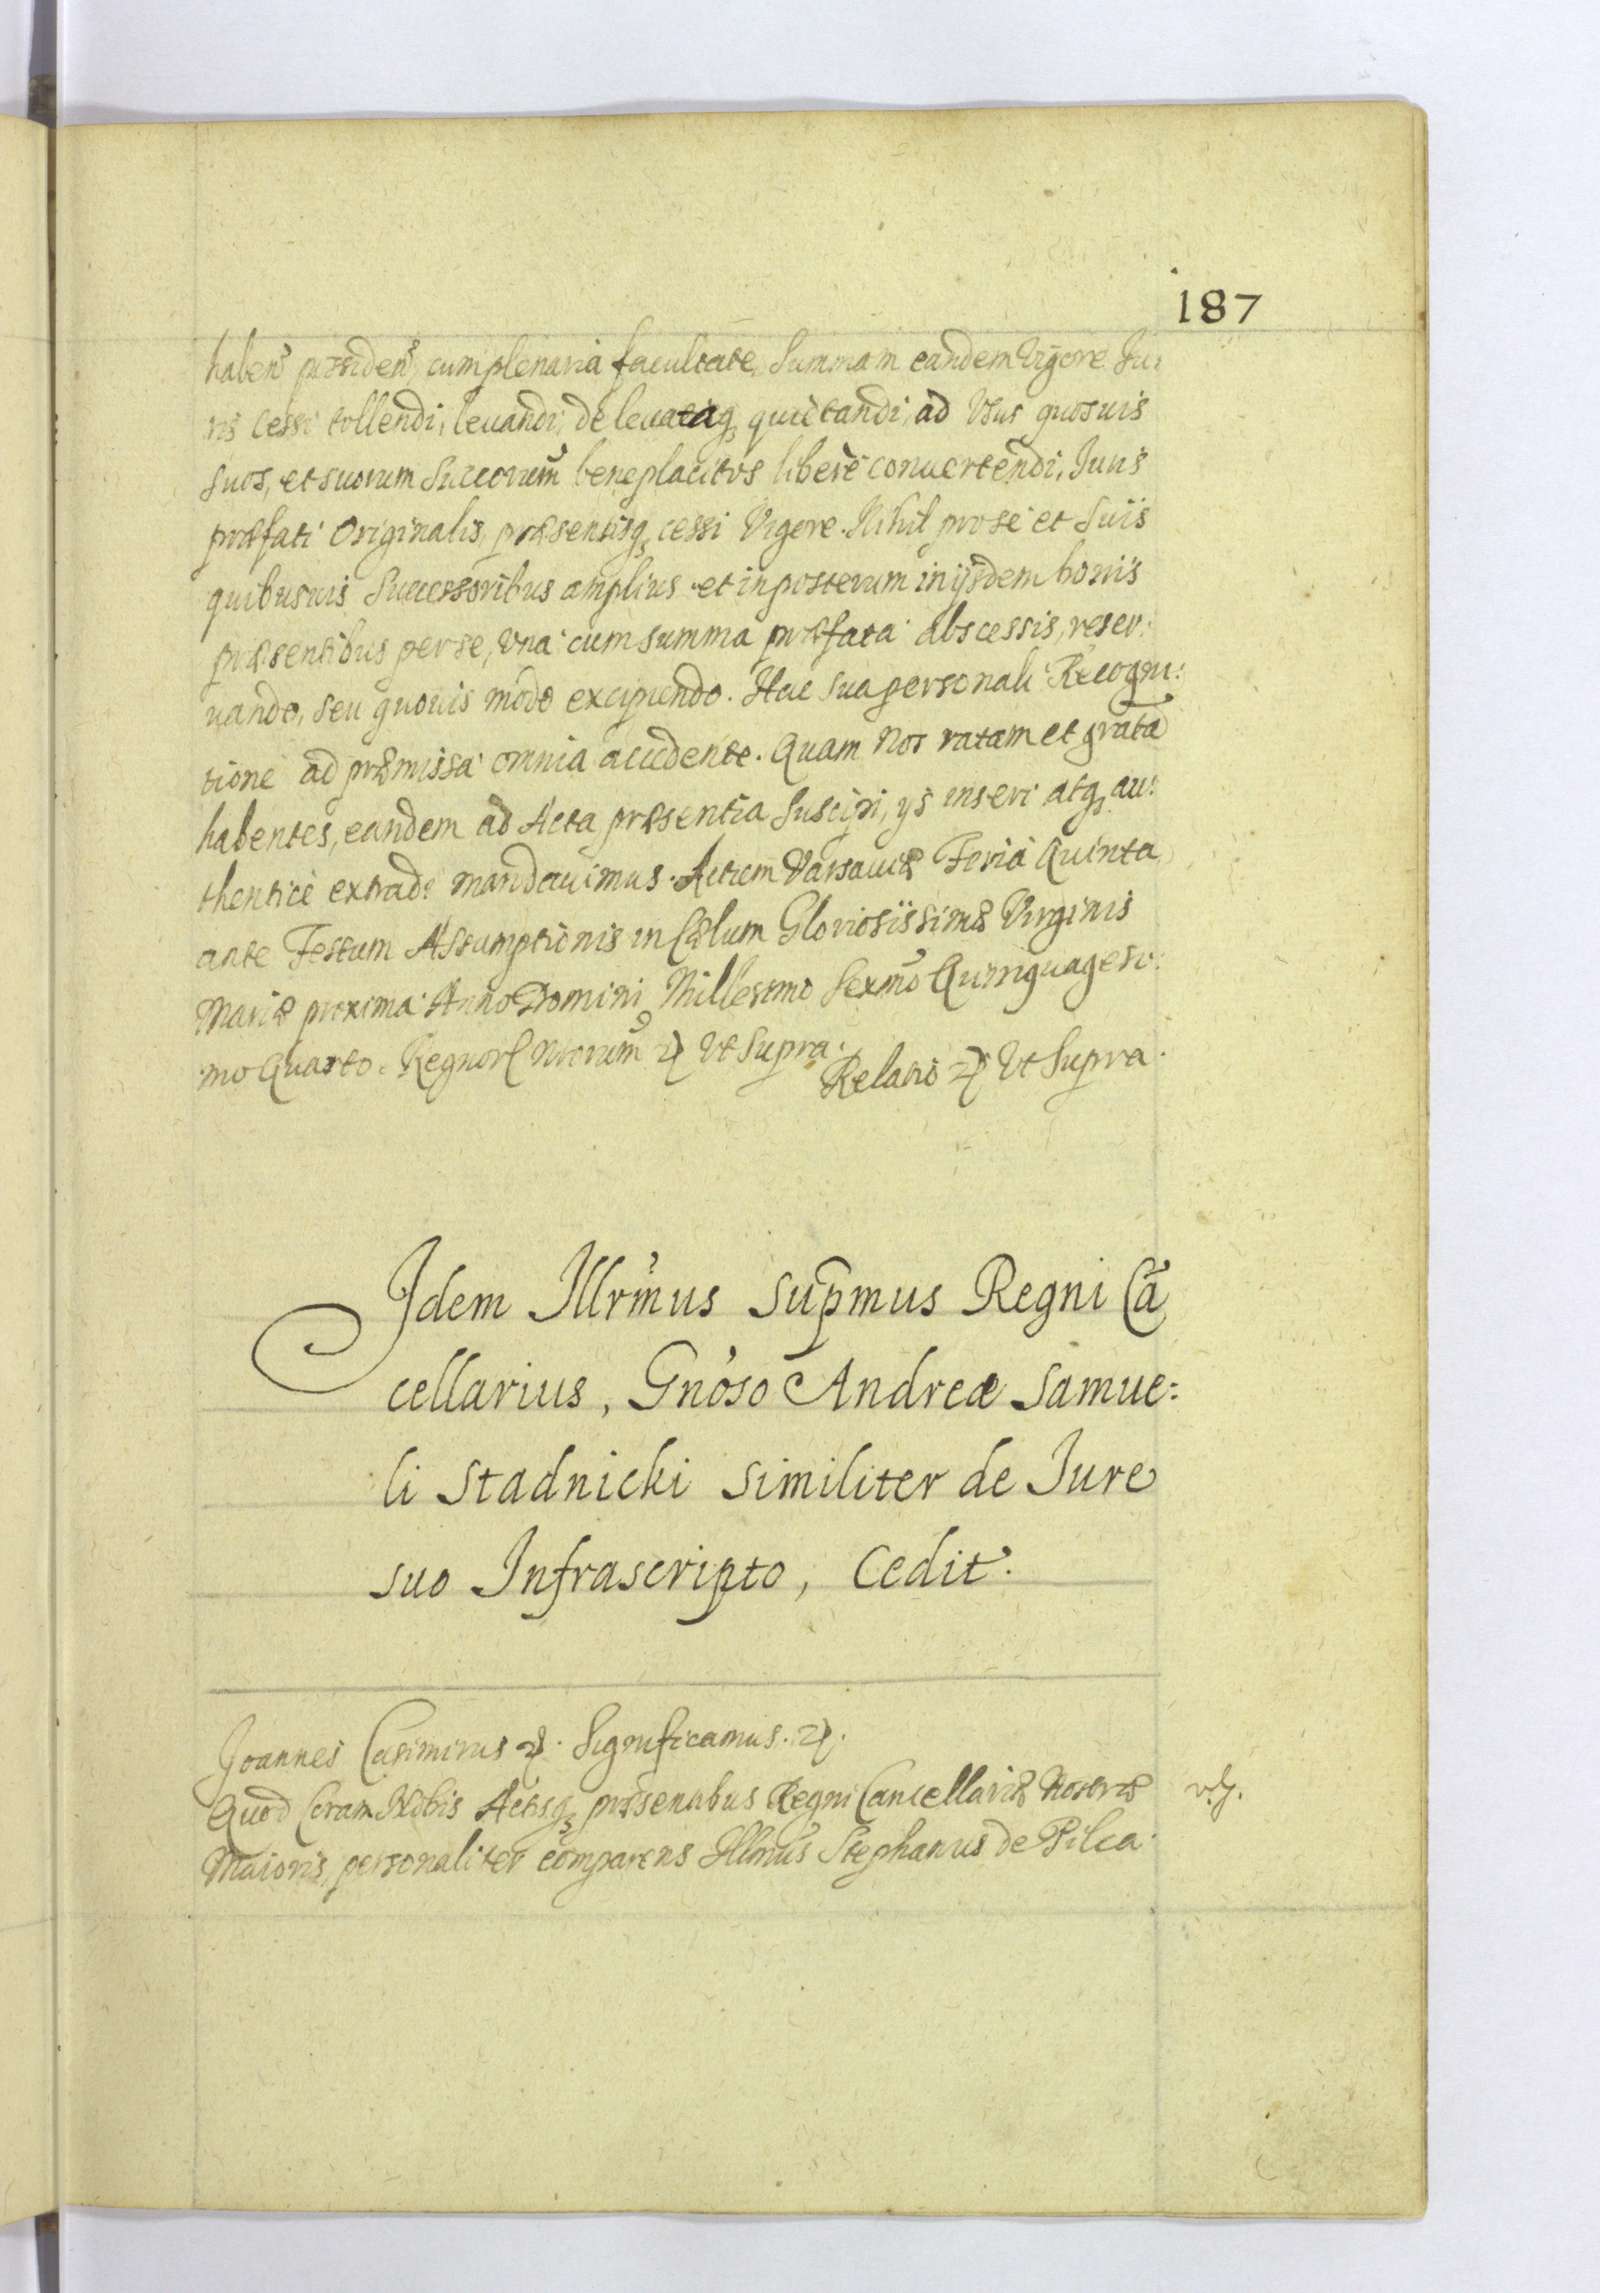 187
haben̄ possiden̄, cum plenaria facultate, Summam eandem Vigore Iu:
ris Cessi tollendi, leuandi, de leuataq̨ quietandi, ad Usus quosuis
suos, et suorum Succorum̄ beneplacitos liberè conuertendi, Iuris
præfati Originalis, præsentisq̨ cessi Vigore. Nihil pro se et Suis
quibusuis Successoribus amplius et in posterum in ijsdem bonis
præsentibus per se, Vna cum summa præfata abscessis, reser:
uando, seu quouis modo excipiendo. Hac sua personali Recogni:
tione ad præmissa omnia accedente. Quam Nos ratam et gratā
habentes, eandem ad Acta præsentia Suscipi, ijs inseri atq̨ au:
thenticè extrad: mandauimus. Actum Varsauiæ Feria Quinta
ante Festum Assumptionis in Cælum Gloriosissimæ Virginis
Mariæ proxima Anno Domini Millesimo Sexmō Quinquagesi:
mo Quarto. Regnor̃ Nrorum̄ etc Ut Supra.
Relatio etc Ut Supra.
Idem Illrm̄us Sup̄mus Regni Cā
cellarius, Gnōso Andreæ Samue:
li Stadnicki Similiter de Iure
suo Infrascripto, Cedit.
Joannes Casimirus etc. Significamus. etc.
Quod Coram Nobis Actisq̨ præsentibus Regni Cancellariæ Nostræ
Maioris, personaliter comparens Illmūs Stephanus de Pilca